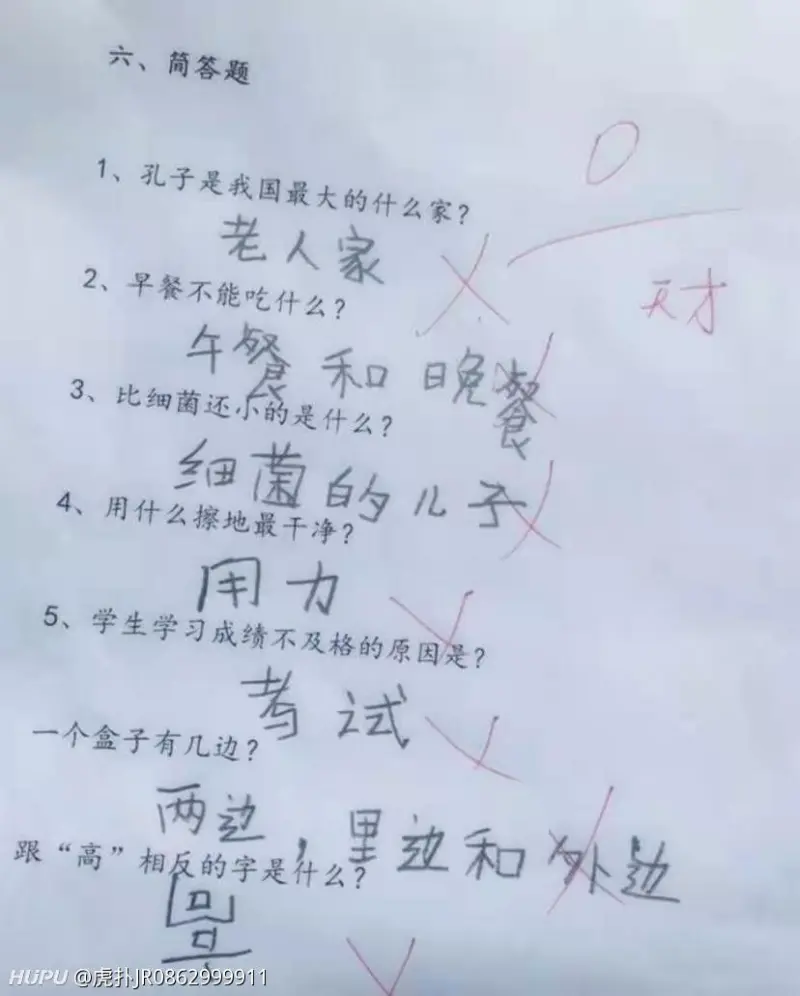 六、简答题
0
天才
1、孔子是我国最大的什么家？
老人家
2、早餐不能吃什么？
午餐和晚餐
3、比细菌还小的是什么？
细菌的儿子
4、用什么擦地最干净？
用力
5、学生学习成绩不及格的原因是？
考试
一个盒子有几边？
两边，里边和外边
跟“高”相反的字是什么？
HUPU @虎扑JR0862999911